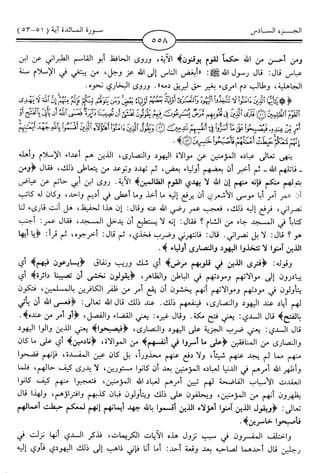 الجـــزء الســـادس
٥٥٨
سورة المـائدة آية ( ٥١ - ٥٣ )
ومن أحسن من الله حكماً لقوم يوقنون﴾ الآية، وروى الحافظ أبو القاسم الطبراني عن ابن
عباس قال: قال رسول الله ﷺ: «أبغض الناس إلى الله عز وجل، من يبتغي في الإسلام سنة
الجاهلية، وطالب دم امرىء بغير حق ليريق دمه». وروى البخاري نحوه.
ينهى تعالى عباده المؤمنين عن موالاة اليهود والنصارى، الذين هم أعداء الإسلام وأهله
- قاتلهم الله - ثم أخبر أن بعضهم أولياء بعض، ثم تهدد وتوعد من يتعاطى ذلك، فقال ﴿ومن
يتولهم منكم فإنه منهم إن الله لا يهدي القوم الظالمين﴾ الآية. روى ابن أبي حاتم عن عياض
أن عمر أمر أبا موسى الأشعري أن يرفع إليه ما أخذ وما أعطى في أديم واحد، وكان له كاتب
نصراني، فرفع إليه ذلك، فعجب عمر رضي الله عنه وقال: إن هذا لحفيظ، هل أنت قارىء لنا
كتاباً في المسجد جاء من الشام؟ فقال: إنه لا يستطيع أن يدخل المسجد، فقال عمر: أجنب
هو؟ قال: لا بل نصراني. قال: فانتهرني وضرب فخذي، ثم قال: أخرجوه، ثم قرأ: ﴿يا أيها
الذين آمنوا لا تتخذوا اليهود والنصارى أولياء ﴾.
وقوله: ﴿فترى الذين في قلوبهم مرض﴾ أي شك وريب ونفاق ﴿يسارعون فيهم﴾ أي
يبادرون إلى موالاتهم ومودتهم في الباطن والظاهر، ﴿يقولون نخشى أن تصيبنا دائرة﴾ أي
يتأولون في مودتهم وموالاتهم أنهم يخشون أن يقع أمر من ظفر الكافرين بالمسلمين، فتكون
لهم أياد عند اليهود والنصارى، فينفعهم ذلك. عند ذلك قال الله تعالى: ﴿فعسى الله أن يأتي
بالفتح﴾ قال السدي: يعني فتح مكة. وقال غيره: يعني القضاء والفصل، ﴿أو أمر من عنده﴾.
قال السدي: يعني ضرب الجزية على اليهود والنصارى، ﴿فيصبحوا﴾ يعني الذين والوا اليهود
والنصارى من المنافقين ﴿على ما أسروا في أنفسهم﴾ من الموالاة، ﴿نادمين﴾ أي على ما كان
منهم مما لم يجد عنهم شيئاً، ولا دفع عنهم محذوراً، بل كان عين المفسدة، فإنهم فضحوا
وأظهر الله أمرهم في الدنيا لعباده المؤمنين بعد أن كانوا مستورين، لا يدرى كيف حالهم، فلما
انعقدت الأسباب الفاضحة لهم تبين أمرهم لعباد الله المؤمنين، فتعجبوا منهم كيف كانوا
يظهرون أنهم من المؤمنين، ويحلفون على ذلك ويتأولون فبان كذبهم وافتراؤهم، ولهذا قال
تعالى: ﴿ويقول الذين آمنوا أهؤلاء الذين أقسموا بالله جهد أيمانهم إنهم لمعكم حبطت أعمالهم
فأصبحوا خاسرين﴾.
واختلف المفسرون في سبب نزول هذه الآيات الكريمات، فذكر السدي أنها نزلت في
رجلين قال أحدهما لصاحبه بعد وقعة أحد: أما أنا فإني ذاهب إلى ذلك اليهودي فآوي إليه